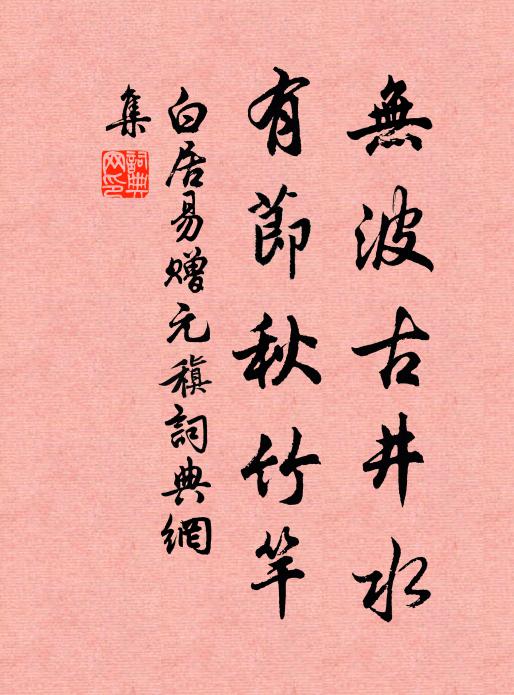 無波古井水
有節秋竹竿
白居易贈元稹詞典網
集
詞典
网印